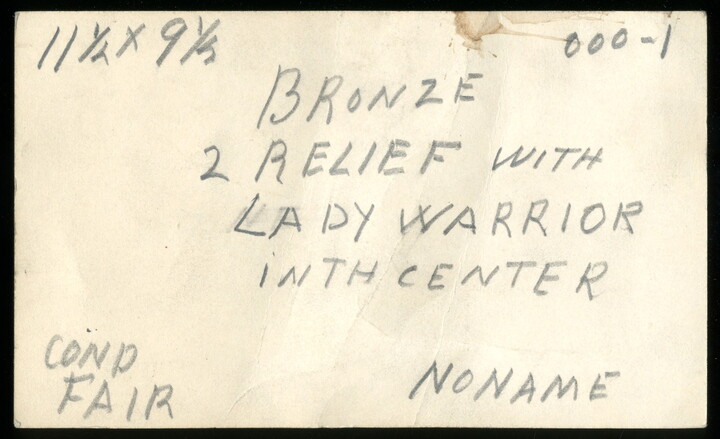 11 1/2 X 9 1/2
000-1
BRONZE
2 RELIEF WITH
LADY WARRIOR
INTH CENTER
COND
FAIR
NONAME